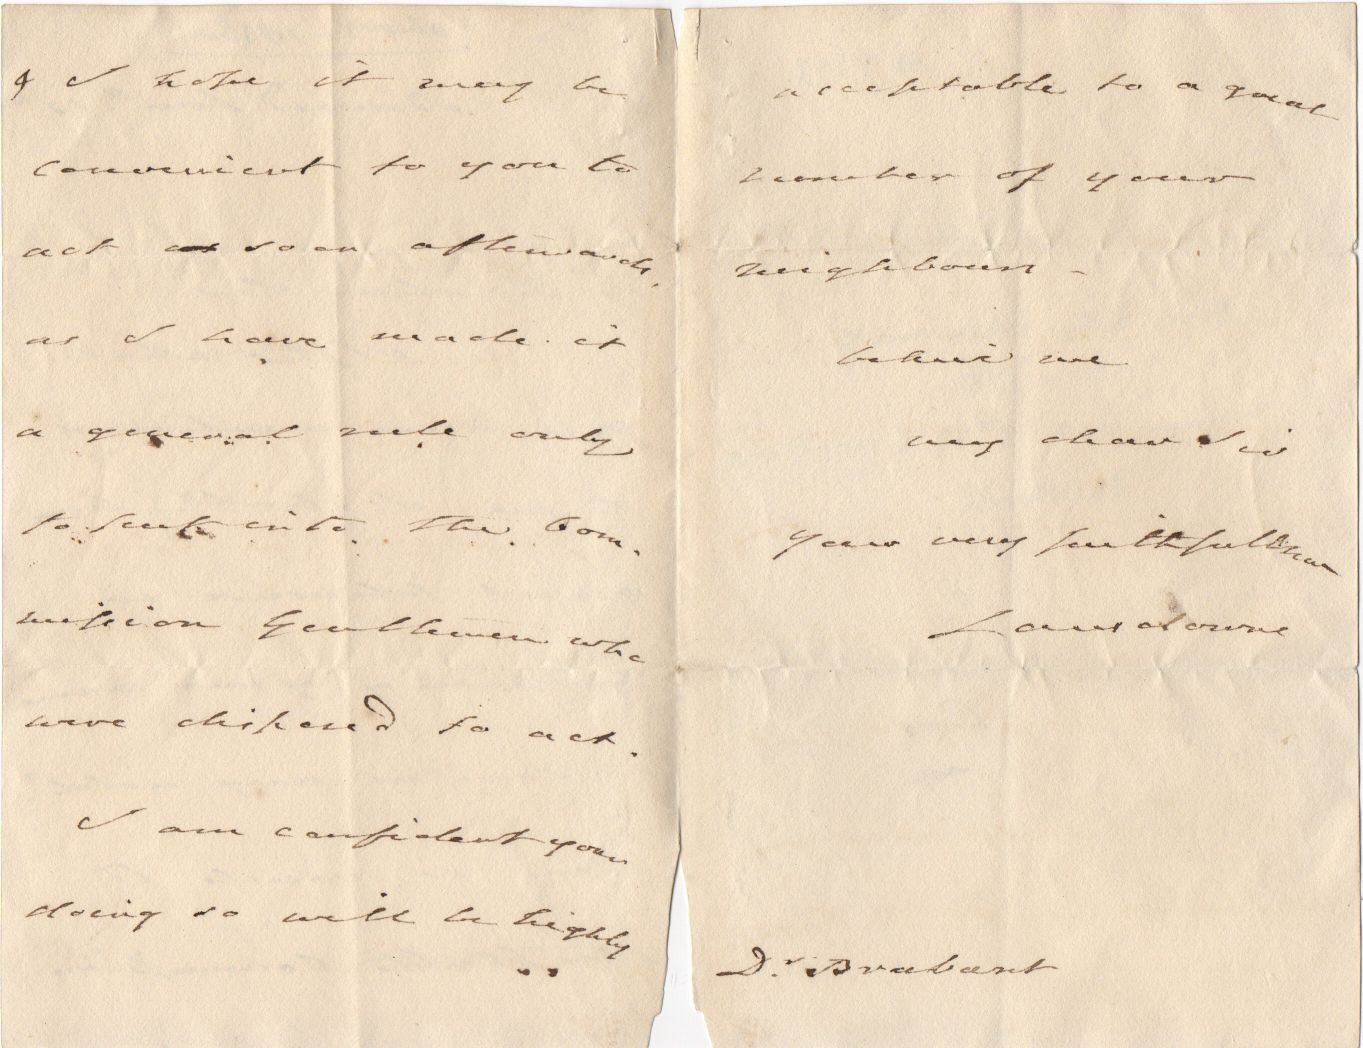 & I hope it may be
convenient to you to
act as soon afterwards,
as I have made it
a general rule only
to put into the Com-
mission Gentlemen who
were dispos'd to act.
I am confident your
doing so will be highly
acceptable to a great
number of your
neighbours -
believe me
my dear Sir
Yours very faithfully
Lansdowne
Dr. Brabant